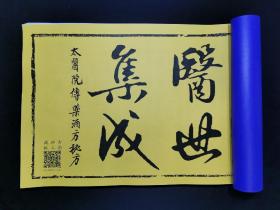 醫世
集成
太醫院傳藥酒方秘方